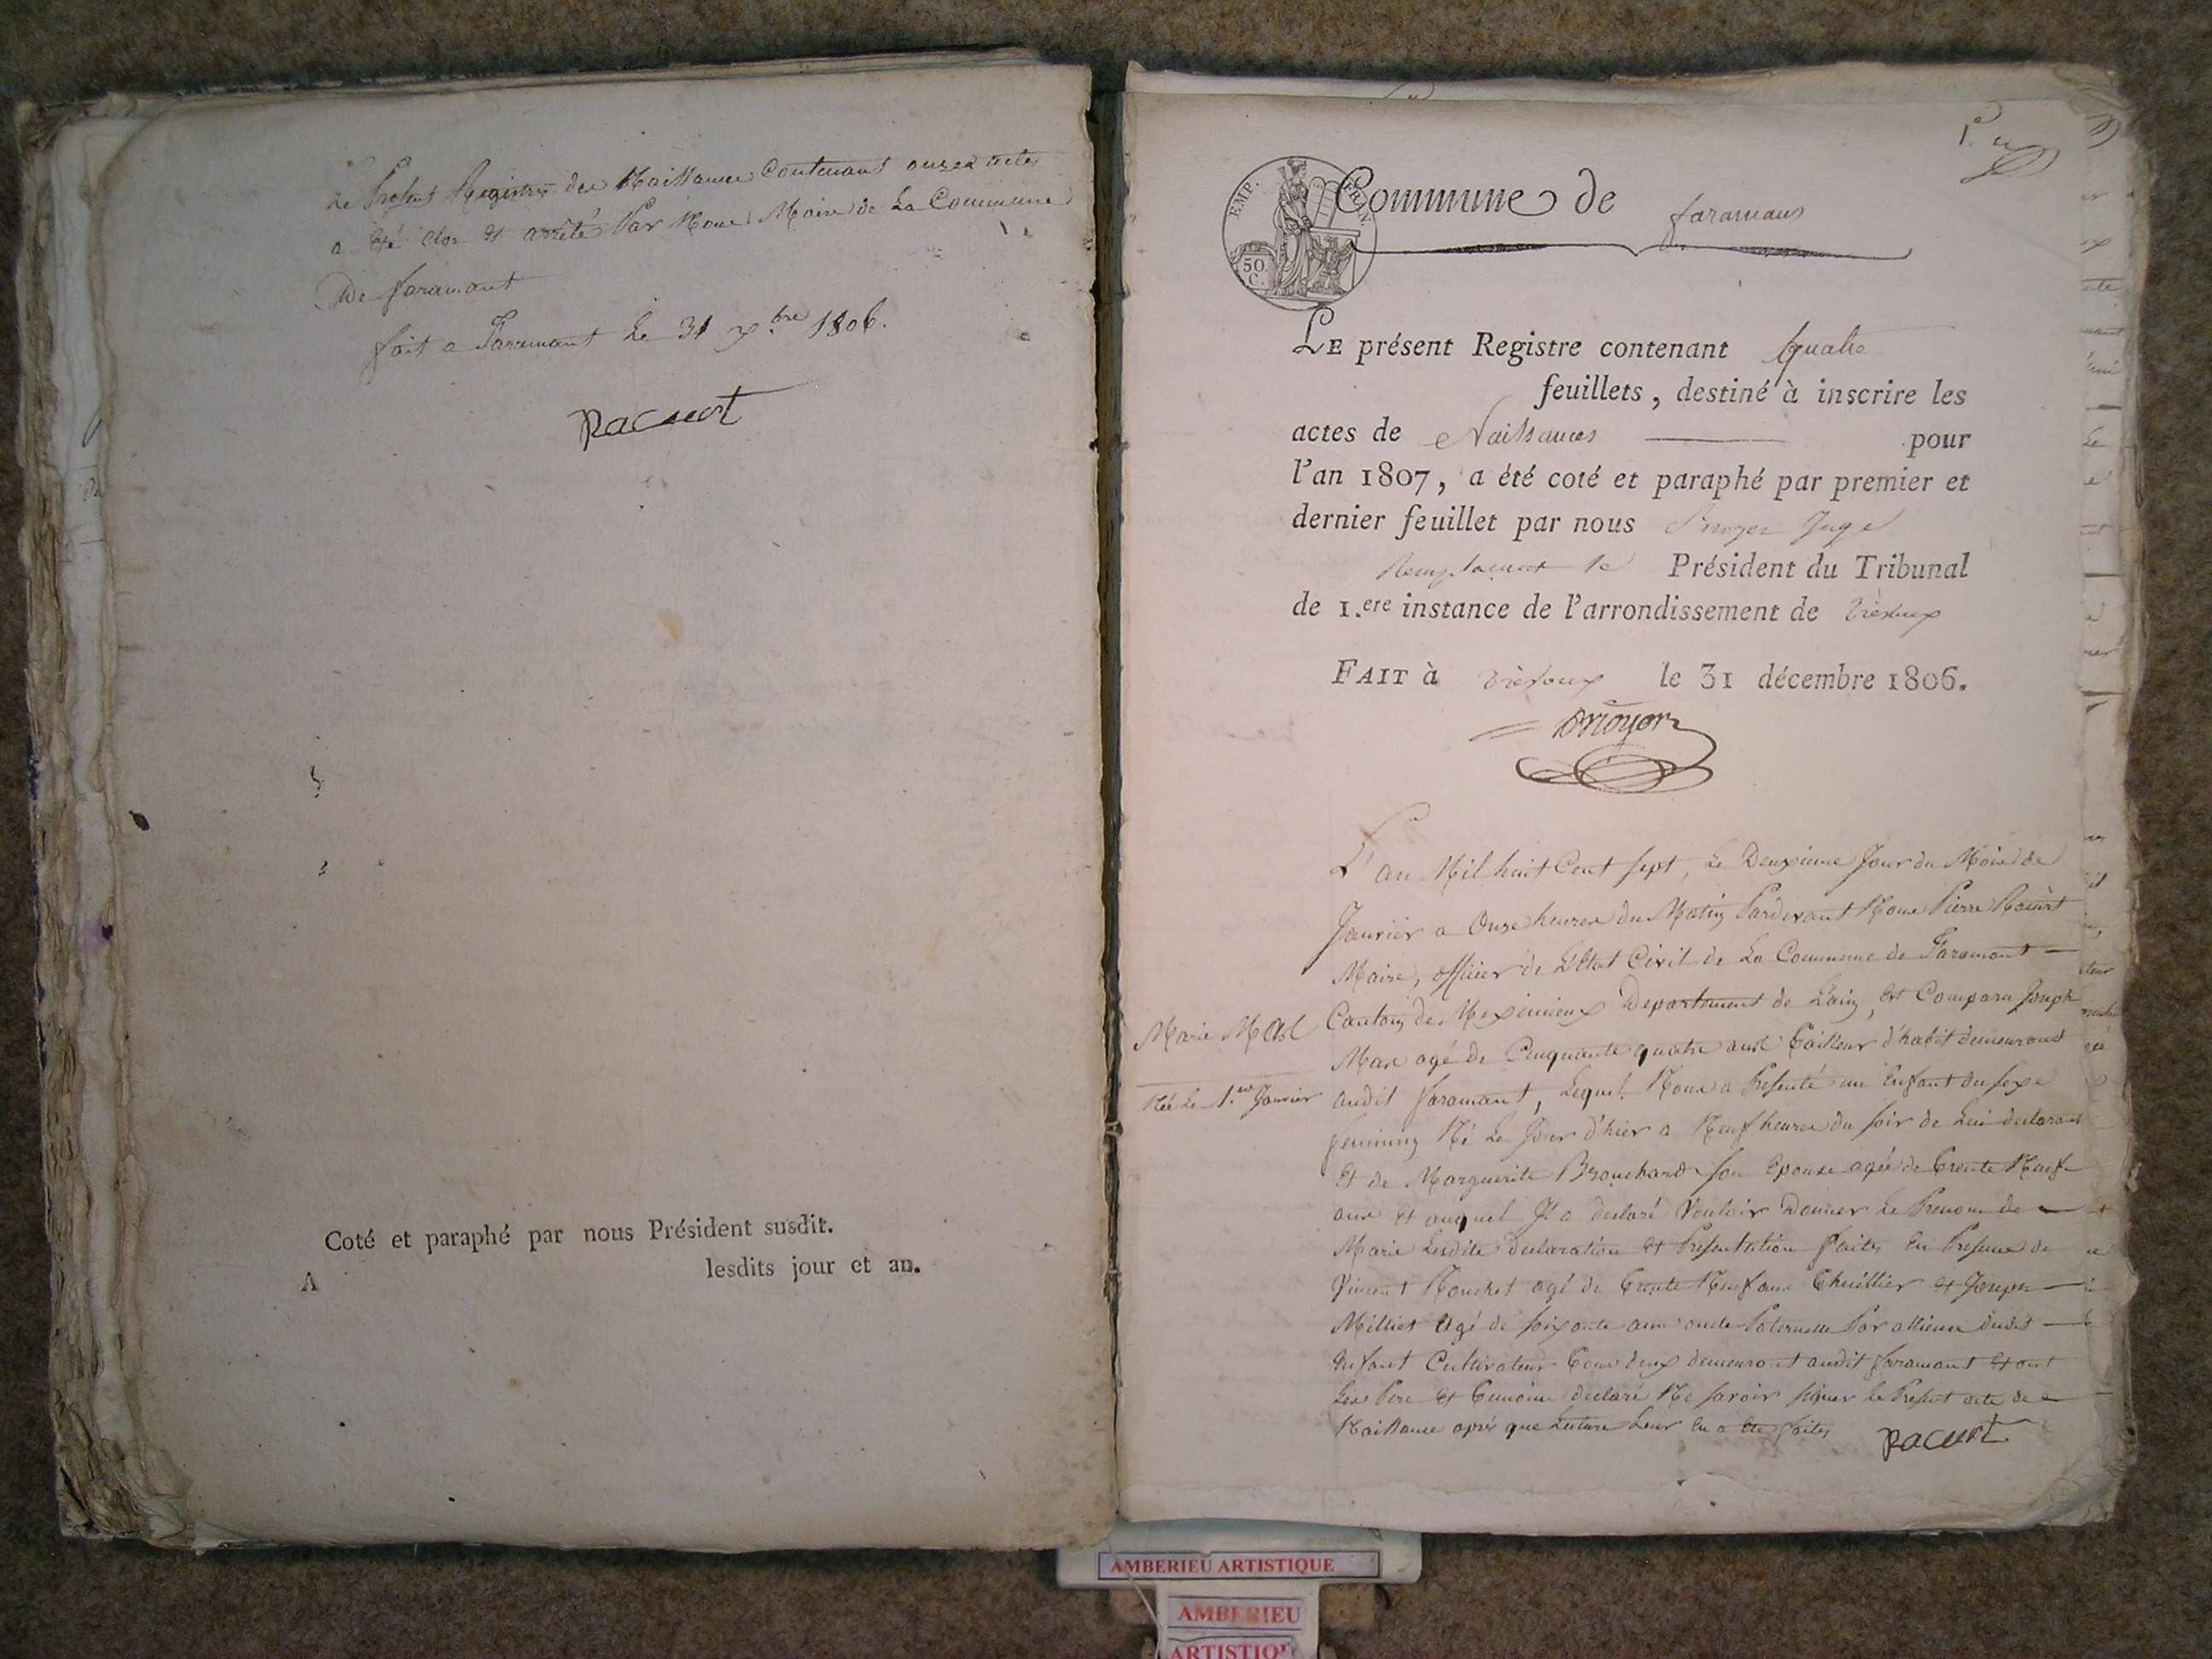 Le Present Registre des Naissance Contenant onzes actes
a été clos et arrêté Par Nous Maire de La Commune
De faramant
fait a Faramant Le 31 xbre 1806.
Racurt
Coté et paraphé par nous Président susdit.
lesdits jour et an.
A
EMP. FRAN.
50.
C.
Commune de faramans
LE présent Registre contenant quatre
feuillets, destiné à inscrire les
actes de Naissances pour
l'an 1807, a été coté et paraphé par premier et
dernier feuillet par nous Juge
Remplaçant le Président du Tribunal
de 1.ere instance de l'arrondissement de Trévoux
FAIT à Trévoux le 31 décembre 1806.
L'an Mil huit Cent sept, Le Deuxieme Jour du Mois de
Janvier a Onze heures du Matin Pardevant Nous Pierre Racurt
Maire, officier de L'Etat Civil de La Commune de Faramant
Canton de Meximieux Departement de Lain, est Comparu Joseph
Mas agé de Cinquante quatre ans Tailleur d'habit demeurant
audit faramant, Lequel Nous a Presenté un Enfant du sexe
feminin Né Le Jour d'hier a Neuf heures du soir de Lui declarant
Et de Marguerite Brouchard son Epouse agée de Trente Neuf
ans Et auquel Il a declaré Vouloir Donner Le Prenom de
Marie Lesdite declaration Et Presentation faites En Presence de
Vincent agé de Trente Neuf ans et Joseph
Milliet agé de soixante ans oncle Paternelle Par alliance dudit
Enfant Cultivateur Tous deux demeurant audit faramant Et ont
Les Pere Et temoins declaré Ne savoir signer Le Present acte de
Naissance après que Lecture Leur En a Eté faites Racurt
Marie MAS
Née Le 1.er Janvier
AMBERIEU ARTISTIQUE
AMBERIEU
ARTISTIQ